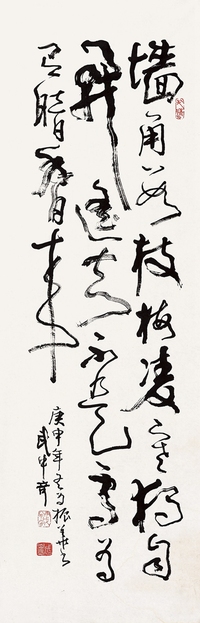 墙角数枝梅凌寒独自
开遥知不是雪为
有暗香来
庚申年冬为振华书
武中奇